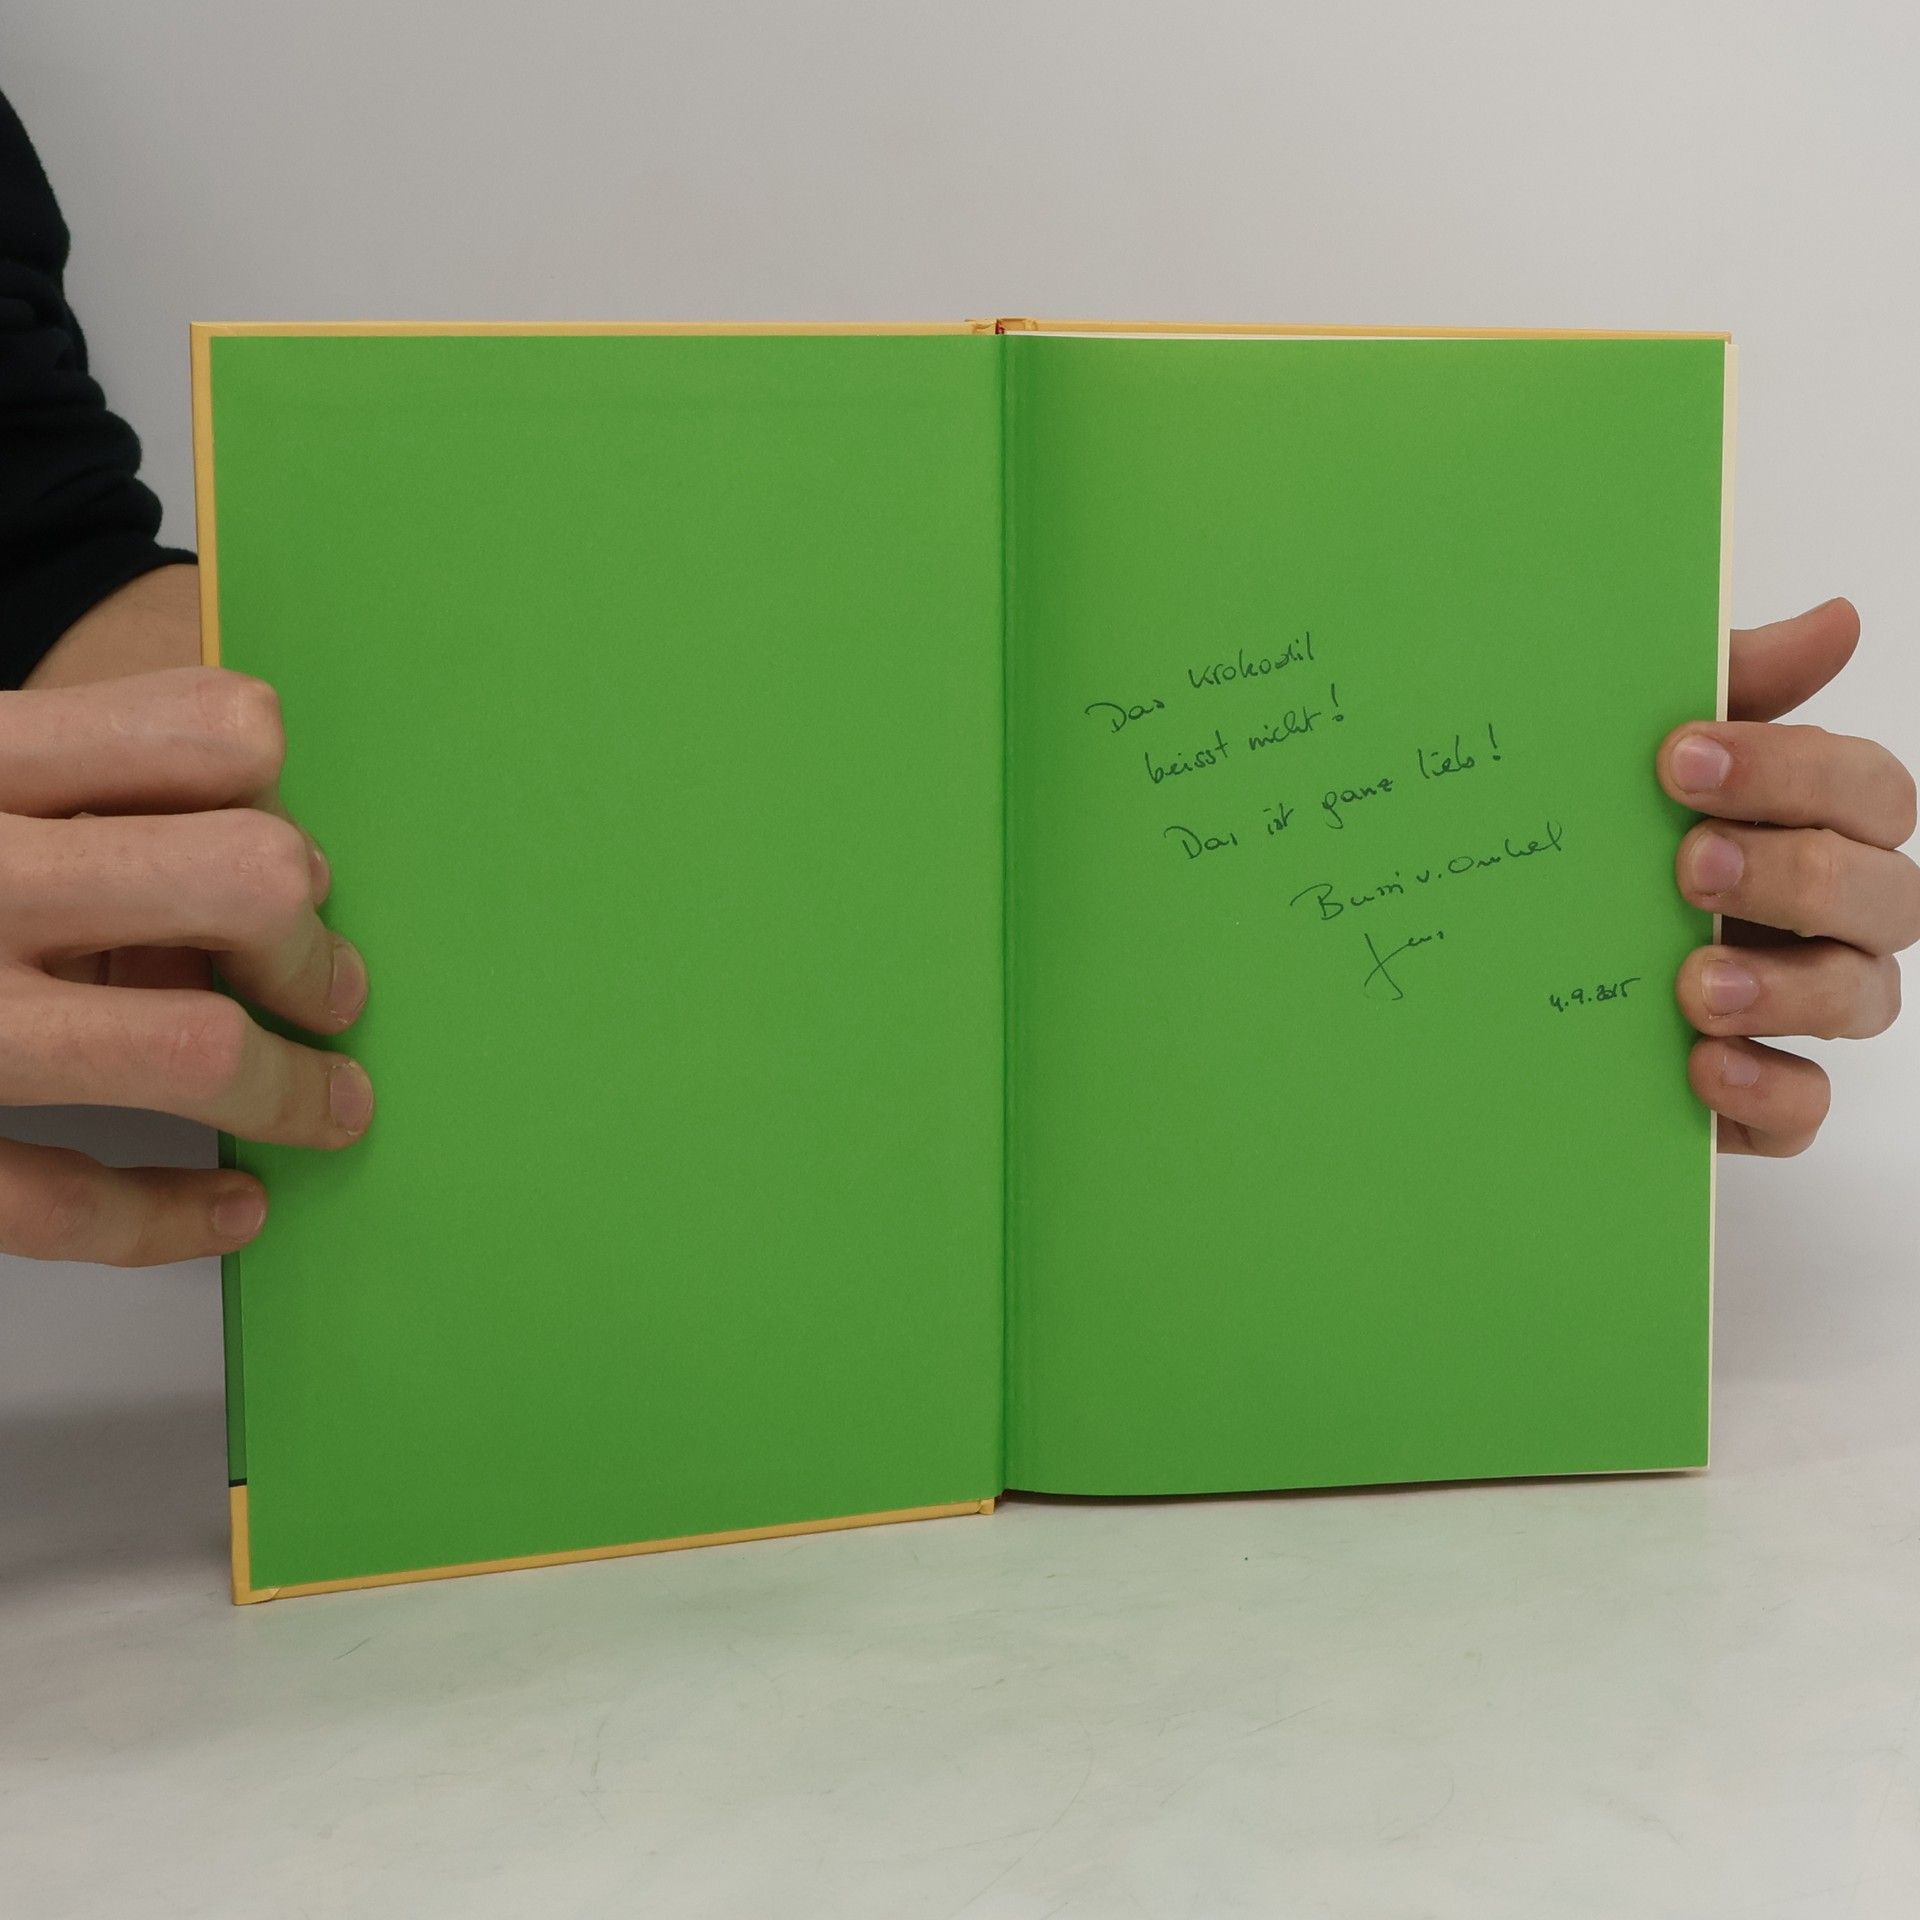 Das Krokodil
beisst nicht!
Das ist ganz lieb!
Bussi v. Onkel
Jens
4.9.2015